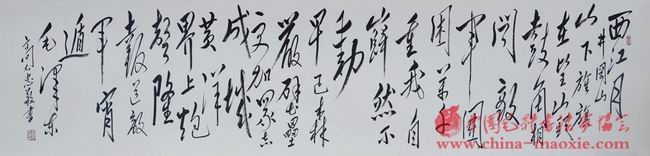 西江月
井冈山
山下旌旗
在望山头
鼓角相
闻敌
军围
困万千
重我自
岿然不
动
早已森
严壁垒
更加众志
成城
黄洋
界上炮
声隆
报道敌
军宵
遁
毛泽东
中国毛协书法家协会
www.china-maoxie.com